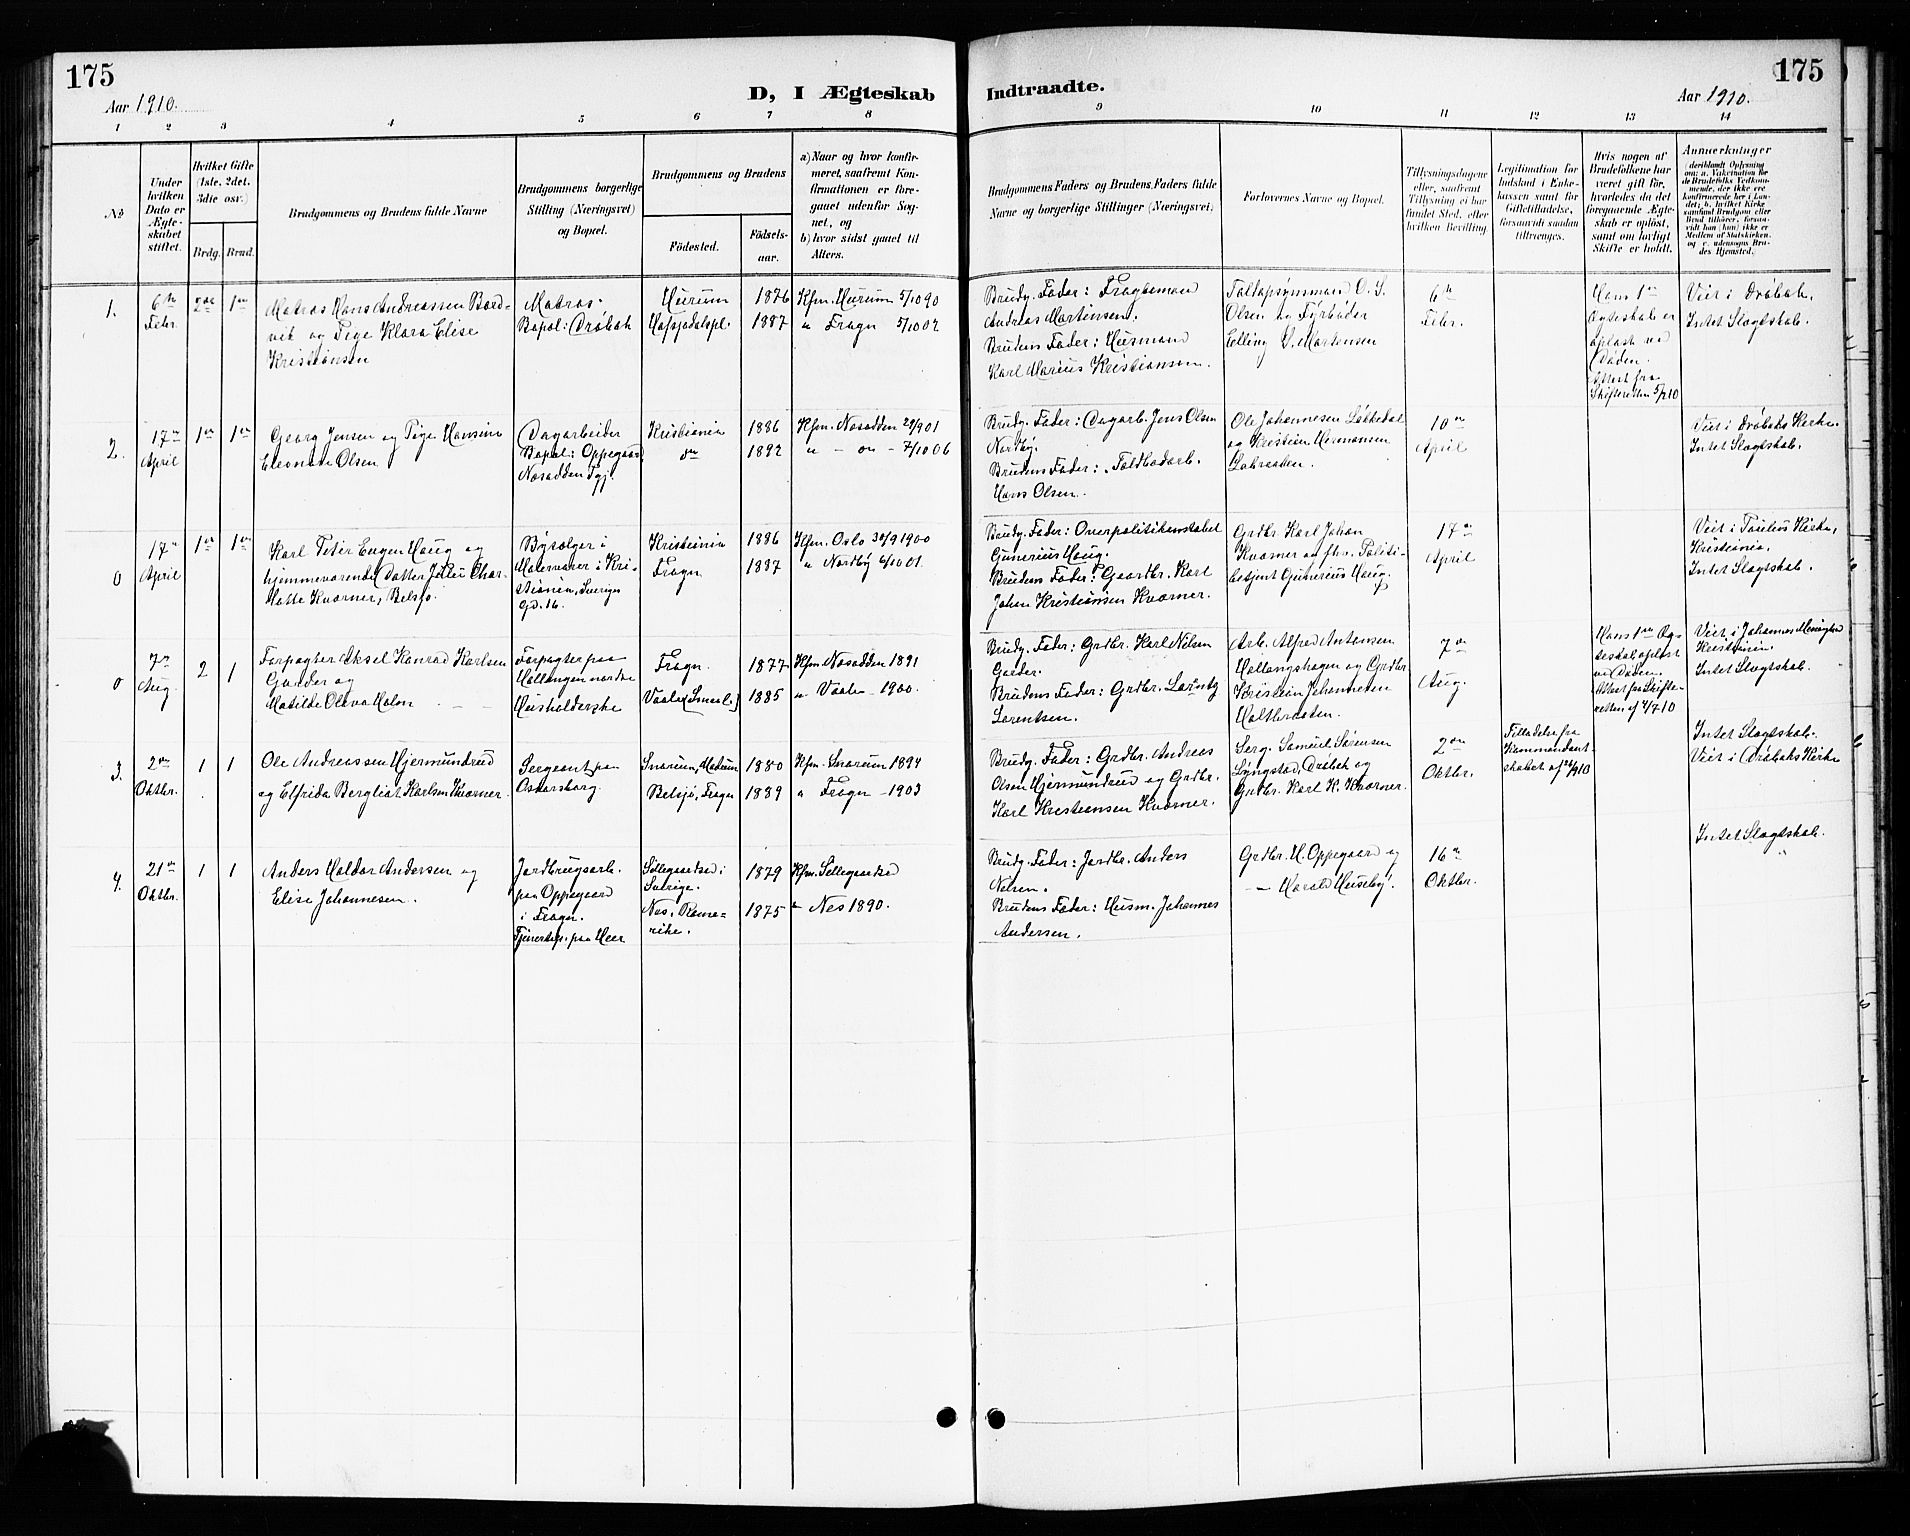 175
Aar 1910.
D, I Ægteskab
1 2 3 4 5 6 7 8
No
Under hvilken Dato er Ægteskabet stiftet.
Hvilket Gifte (1ste, 2det, 3die osv.)
Brdg. Brud.
Brudgommens og Brudens fulde Navne
Brudgommens borgerlige Stilling (Næringsvei) og Bopæl.
Brudgommens og Brudens
Födested.
Födselsaar.
a) Naar og hvor konfirmeret, saafremt Konfirmationen er foregaaet udenfor Sognet, og
b) hvor sidst gaaet til Alters.
1.
6te
Febr.
2de
1ste
Matros Hans Andreassen Bard-
vik og Pige Klara Elise
Kristiansen
Matros.
Bopæl: Drøbak
Hurum
1876
Kfm. Hurum 5/10 90
1887
" Frogn 5/10 02
2.
17de
April
1ste
1ste
Georg Jensen og Pige Hansine
Eleonore Olsen
Dagarbeider
Bopæl: Oppegaard
Nesodden Pgj.
Kristiania
do
1886
1892
Kfm. Nesodden 29/9 01
" - do - 7/10 06
0
17de
April
1ste
1ste
Karl Peter Eugen Haug og
hjemmeværende Datter Julie Char-
lotte Kværner, Belsjø.
Bysælger i
Malervarer i Kri-
stiania, Sveriges
gd. 16.
Kristiania
Frogn
1886
1887
Kfm. Oslo 30/9 1900
" Nordby 6/10 01.
0
7de
Aug.
2
1
Forpagter Aksel Konrad Karlsen
Garder og
Matilde Oleva Holm
Forpagter paa
Hallangen nordre
Husholderske
Frogn
Vaale
1877
1885
Kfm. Nesodden 1891
" Vaale - 1900.
3.
2den
Oktbr.
1
1
Ole Andreassen Hjermundrud
og Elfrida Bergliot Karlsen Kværner.
Sergeant paa
Oskarsborg.
Snarum, Modum
Belsjø, Frogn
1880
1889
Kfm. Snarum 1894
" Frogn - 1903
4.
21de
Oktbr.
1
1
Anders Haldor Andersen og
Elise Johannesen.
Jordbrugsarb.
paa Oppegaard
i Frogn.
Tjenestep. paa Heer
Sillegaardsed i
Sverige.
Nes, Rome-
rike.
1879
1875
Kfm. Sillegaardsed
" Nes 1890.
175
Indtraadte.
Aar 1910.
9 10 11 12 13 14
Brudgommens Faders og Brudens Faders fulde Navne og borgerlige Stillinger (Næringsvei)
Forlovernes Navne og Bopæl.
Tillysningsdagene eller, saafremt Tillysning ei har fundet Sted, efter hvilken Bevilling.
Legitimation for Indskud i Enkekassen samt for Giftetilladelse, forsaavidt saadan tiltrænges.
Hvis nogen af Brudefolkene har været gift før, hvorledes da det foregaaende Ægteskab er opløst, samt om lovligt Skifte er holdt.
Anmærkninger
Brudg. Fader: Fragtemand
Andreas Martinsen.
Brudens Fader: Husmand
Karl Marius Kristiansen.
Toldopsynsmand O. S.
Olsen og Fyrbøder
Elling S. Mortensen
6te
Febr.
Hans 1ste
Ægteskab er
opløst ved
Døden.
Attest fra
Skifteretten 5/2 10
Viet i Drøbak.
Intet Slægtskab.
Brudg. Fader: Dagarb. Jens Olsen
Nordby.
Brudens Fader: Toldbodarb.
Hans Olsen.
Ole Johannesen Løkkedal
og Kristian Hermansen
10de
April
Viet i Drøbaks Kirke.
Intet Slægtskab.
Brudg. Fader: Overpolitikonstabel
Gunerius Haug.
Brudens Fader: Gaardbr. Karl
Johan Kristiansen Kværner.
Grdbr. Karl Johan
Kværner og fhv. Politi-
betjent Gunerius Haug.
17de
April
Viet i Paulus Kirke,
Kristiania.
Intet Slægtskab.
Brudg. Fader: Grdbr. Karl Nilsen
Garder.
Brudens Fader: Grdbr. Laurits
Lorentsen.
Arb. Alfred Antonsen
Hallangshagen og Grdbr.
Kristian Johannesen
Holtbraaten.
7de
Aug.
Hans 1ste Æg-
teskab opløst
ved Døden.
Attest fra Skifte-
retten af 4/7 10
Viet i Johannes Menighed
Kristiania.
Intet Slægtskab.
Brudg. Fader: Grdbr. Andreas
Olsen Hjermundrud og Grdbr.
Karl Kristiansen Kværner.
Serg. Samuel Sørensen
Lyngstad, Drøbak og
Grdbr. Karl K. Kværner.
2den
Oktbr.
Tilladelse fra
Kommandant-
skabet af 26/9 10
Intet Slægtskab.
Viet i Drøbaks Kirke
Brudg. Fader: Jordbr. Anders
Nilsen.
Brudens Fader: Husm. Johannes
Andersen.
Grdbr. H. Oppegaard og
- " - Harald Huseby.
16de
Oktbr.
Intet Slægtskab.